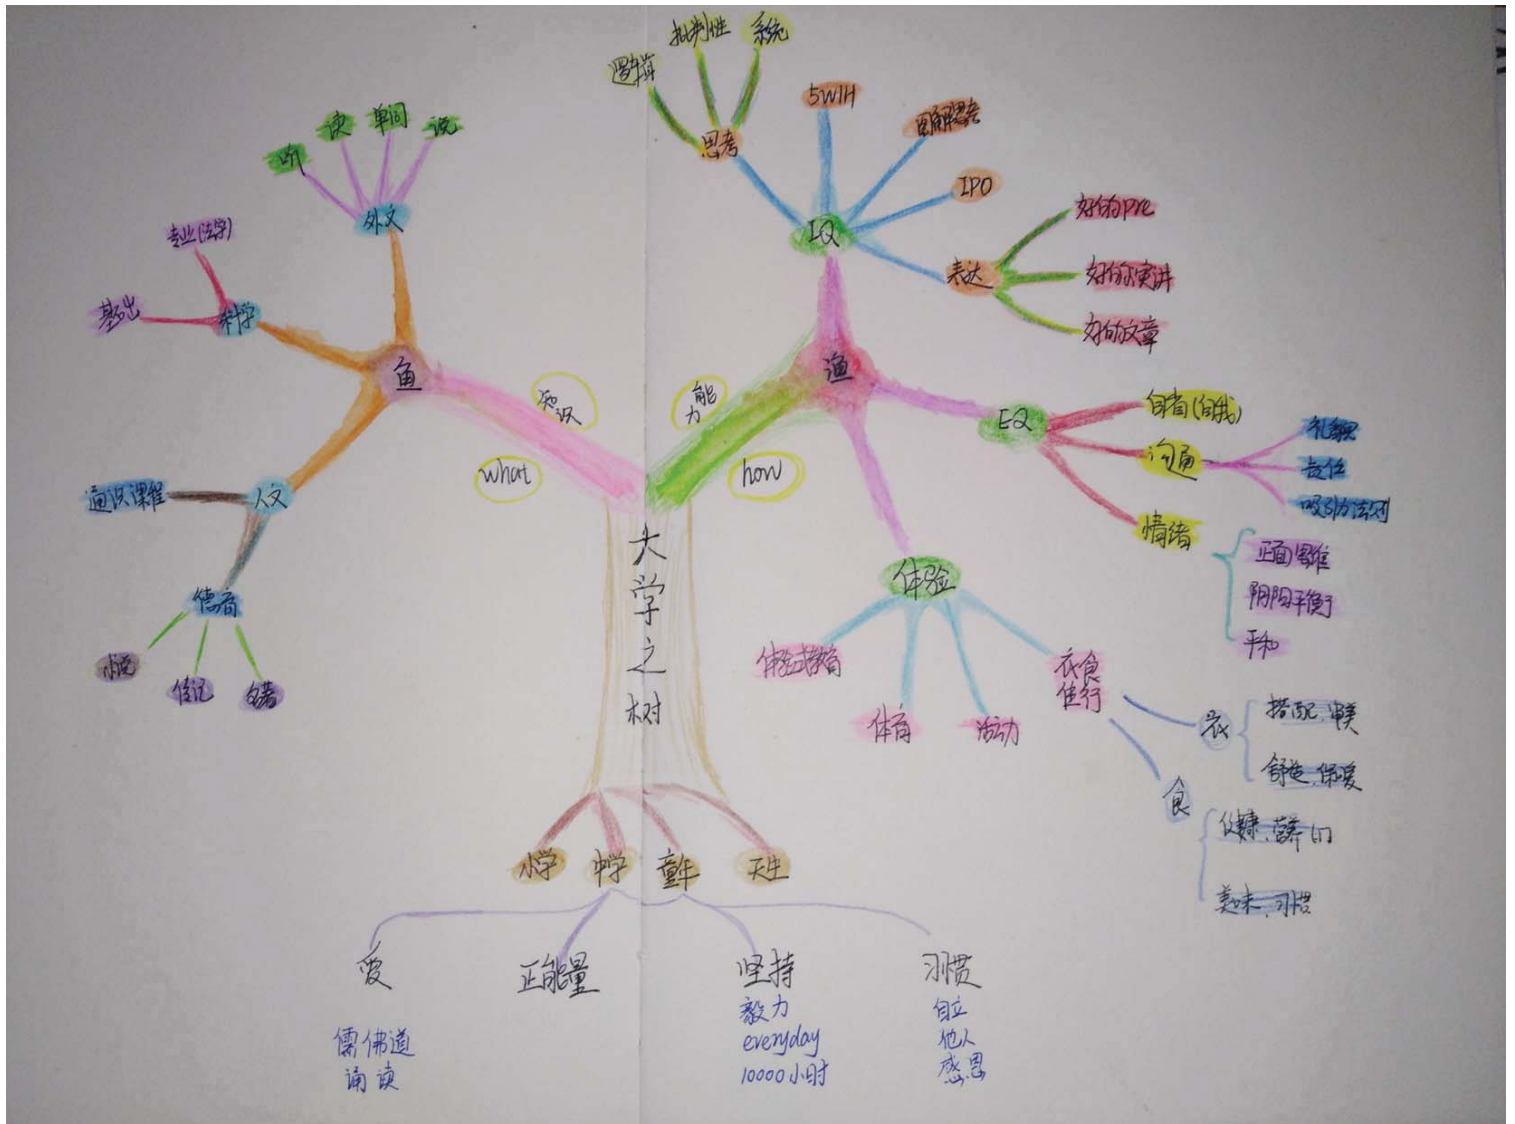 大学之树
知识
what
鱼
外文
听
读
单词
说
科学
专业(法学)
基础
人文
通识课程
德育
小说
传记
名著
能力
how
渔
IQ
思考
逻辑
批判性
系统
5W1H
图解思考
IPO
表达
好的pre
好的演讲
好的文章
EQ
自省(自我)
沟通
礼貌
责任
吸引力法则
情绪
正面思维
阴阳平衡
平和
体验
体验式教育
体育
活动
衣食
住行
衣
搭配、审美
舒适、保暖
食
健康、营养
美味、习惯
小学
中学
童年
天生
爱
儒佛道
诵读
正能量
坚持
毅力
everyday
10000小时
习惯
自立
他人
感恩